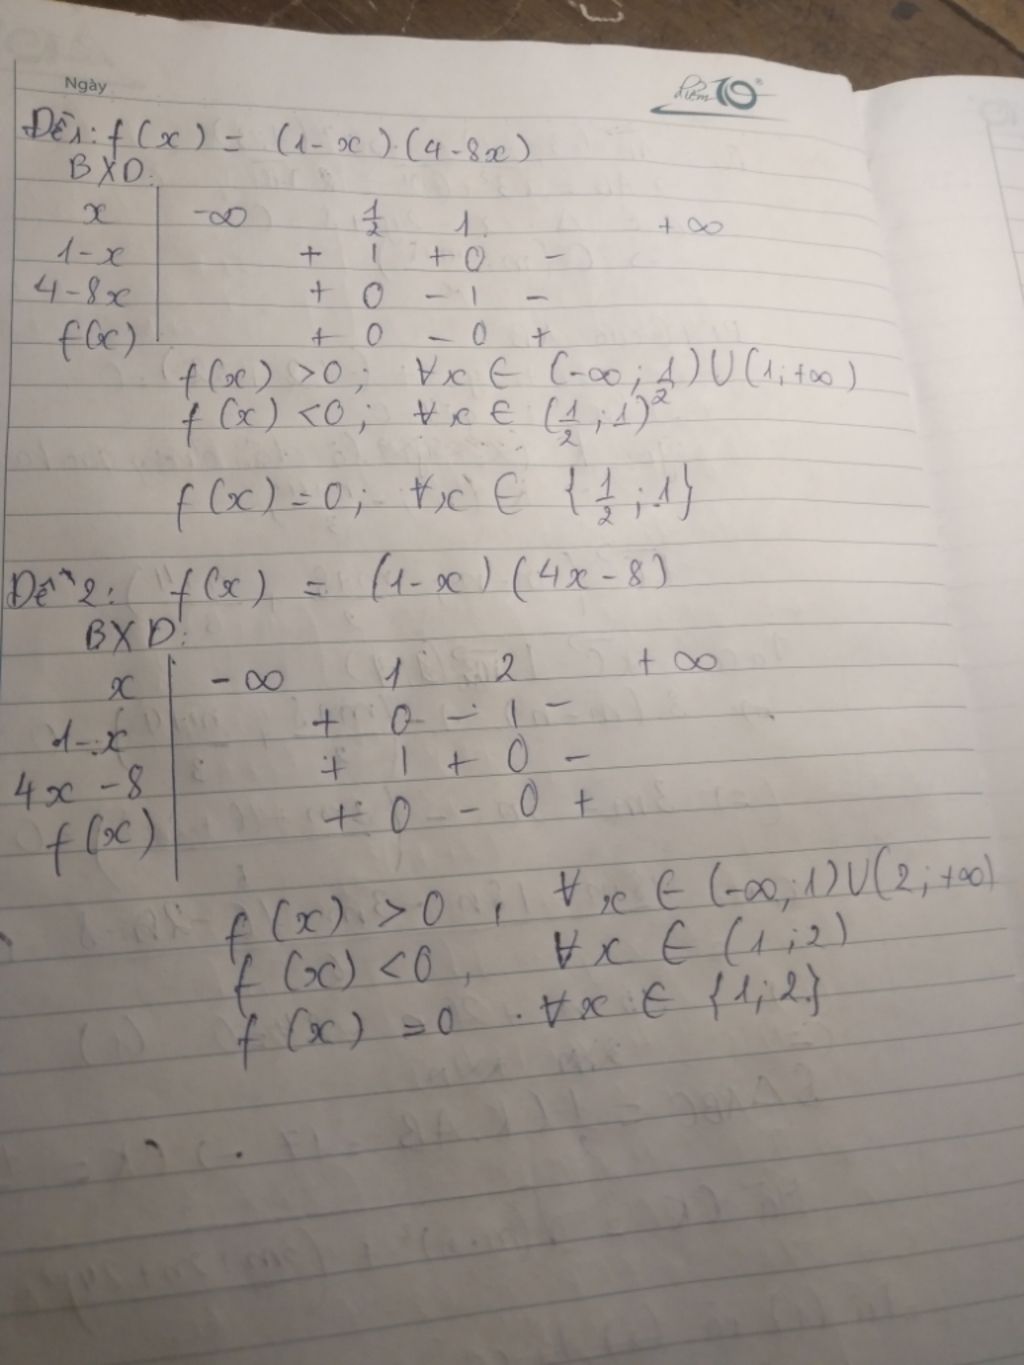 Ngày
điểm 10
Đề 1: f(x) = (1-x).(4-8x)
BXD:
x -∞ 1/2 1 +∞
1-x + | + 0 -
4-8x + 0 - | -
f(x) + 0 - 0 +
f(x) >0; ∀x ∈ (-∞; 1/2) ∪ (1; +∞)
f(x) <0; ∀x ∈ (1/2; 1)
f(x) =0; ∀x ∈ {1/2; 1}
Đề 2: f(x) = (1-x)(4x-8)
BXD:
x -∞ 1 2 +∞
1-x + 0 - | -
4x-8 + | + 0 -
f(x) + 0 - 0 +
f(x) >0, ∀x ∈ (-∞; 1) ∪ (2; +∞)
f(x) <0, ∀x ∈ (1; 2)
f(x) =0. ∀x ∈ {1; 2}